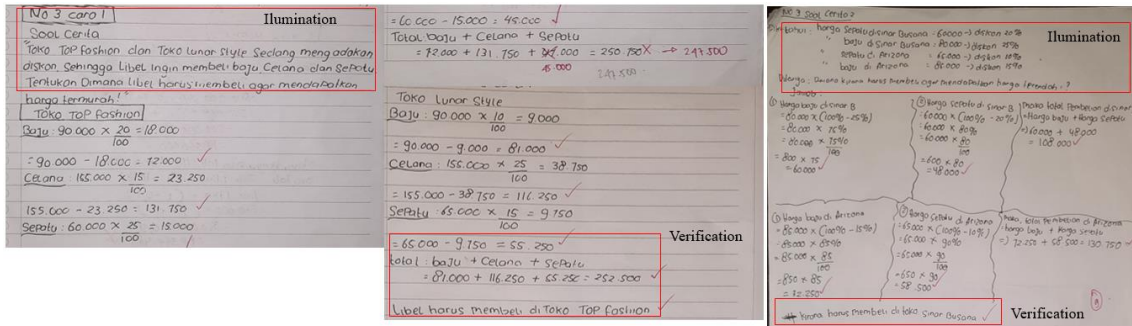 No 3 cara 1
Ilumination
Soal Cerita
Toko TOP Fashion dan Toko Lunar Style Sedang mengadakan
diskon. Sehingga Libel Ingin membeli baju, Celana dan Sepatu
Tentukan Dimana Libel harus membeli agar mendapatkan
harga termurah!
Toko TOP Fashion
Baju : 90.000 × 20/100 = 18.000
= 90.000 - 18.000 = 72.000
Celana : 155.000 × 15/100 = 23.250
155.000 - 23.250 = 131.750
Sepatu : 60.000 × 25/100 = 15.000
= 60.000 - 15.000 = 45.000
Total baju + Celana + Sepatu
= 72.000 + 131.750 + .000 = 250.750 X → 247.500
45.000
247.500
Toko Lunar Style
Baju : 90.000 × 10/100 = 9.000
= 90.000 - 9.000 = 81.000
Celana : 155.000 × 25/100 = 38.750
= 155.000 - 38.750 = 116.250
Sepatu : 65.000 × 15/100 = 9.750
= 65.000 - 9.750 = 55.250
Verification
total : baju + Celana + Sepatu
= 81.000 + 116.250 + 55.250 = 252.500
Libel harus membeli di Toko TOP fashion
No 3 Soal Cerita 2
Ilumination
harga Sepatu di Sinar Busana : 60.000 -> diskon 20%
baju di Sinar Busana : 80.000 -> diskon 25%
Sepatu di Arizona = 65.000 -> diskon 10%
baju di Arizona = 85.000 -> diskon 15%
① Harga baju di Sinar B
= 80.000 × (100% - 25%)
= 80.000 × 75%
= 80.000 × 75%/100
= 800 × 75
= 60.000
② Harga Sepatu di Sinar B
= 60.000 × (100% - 20%)
= 60.000 × 80%
= 60.000 × 80/100
= 600 × 80
= 48.000
Maka total Pembelian di Sinar
= Harga baju + Harga Sepatu
=> 60.000 + 48.000
= 108.000
① Harga baju di Arizona
= 85.000 × (100% - 15%)
= 85.000 × 85%
= 85.000 × 85/100
= 850 × 85
= 72.250
② Harga Sepatu di Arizona
= 65.000 × (100% - 10%)
= 65.000 × 90%
= 65.000 × 90/100
= 650 × 90
= 58.500
Maka, total Pembelian di Arizona
= harga baju + Harga Sepatu
=> 72.250 + 58.500 = 130.750
Kirana harus membeli di toko Sinar Busana
Verification